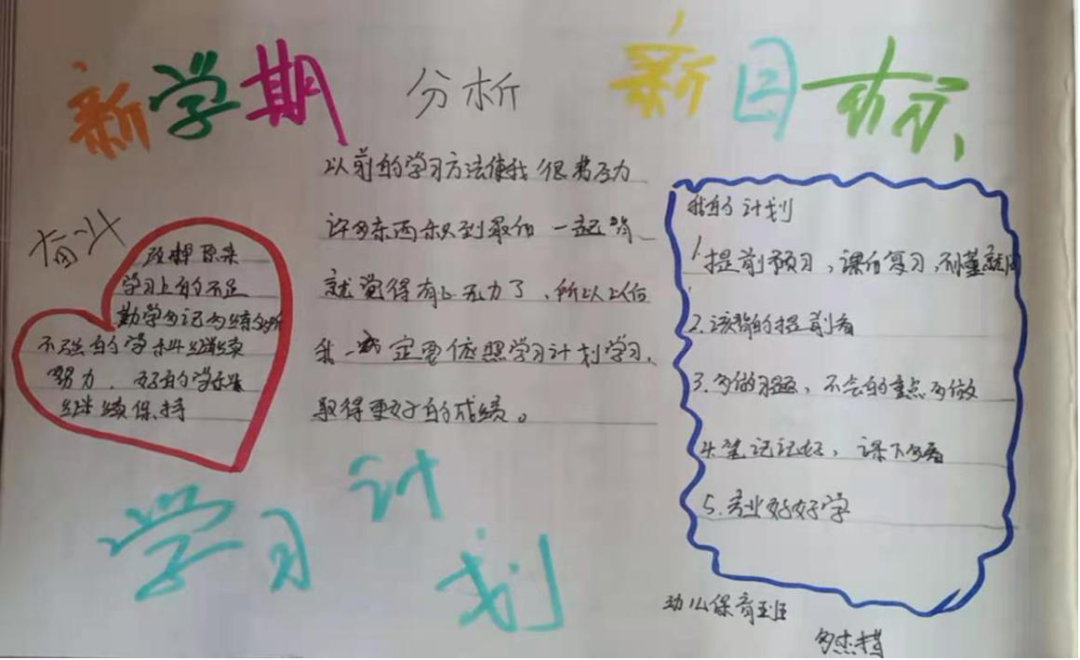 新学期
分析
新目标
奋斗
改掉原来
学习上的不足
勤学多记多练多听
不强的学科继续
努力，好的学科
继续保持
以前的学习方法使我很费力
许多东西积到最后一起背
就觉得有心无力了，所以以后
我一定要依照学习计划学习，
取得更好的成绩。
我的计划
1.提前预习，课后复习，不懂就问
2.该背的提前看
3.多做习题，不会的重点多做
4.笔记记好，课下多看
5.专业好好学
学习计划
幼儿保育班